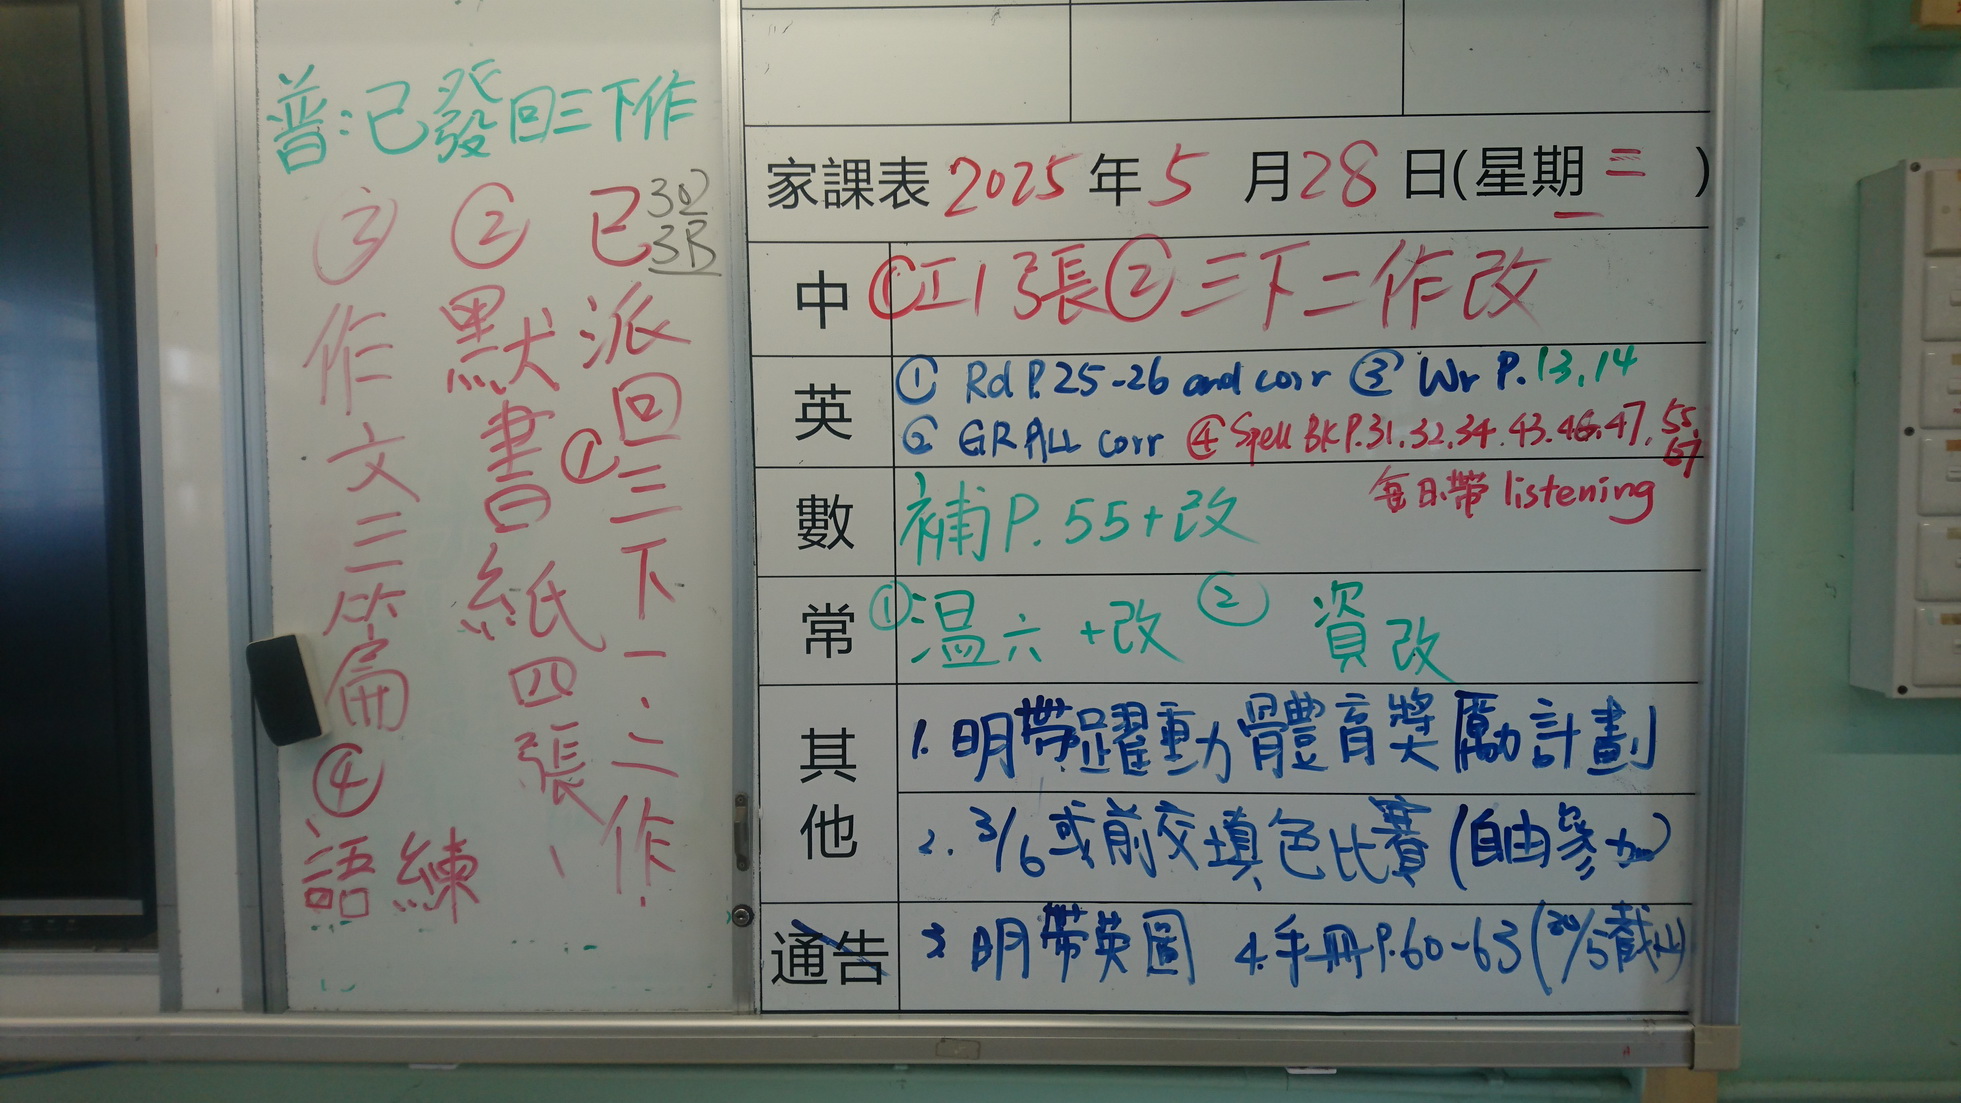 普:已發回三下作
3D
3B
已派回①三下一、二作、
②默書紙四張、
③作文三篇
④語練
家課表 2025 年 5 月 28 日(星期 三 )
中 ①工1 3張②三下二作改
英 ① Rd P.25-26 and corr ③ Wr P.13,14
② GR ALL corr ④ Spell BK P.31.32.34.43.46.47.55.
57
每日帶 listening
數 補P.55+改
常 ①溫六+改 ② 資改
其他 1. 明帶躍動體育獎勵計劃
2. 3/6或前交填色比賽(自由參加)
通告 3. 明帶英圖 4.手冊P.60-63(30/5截止)